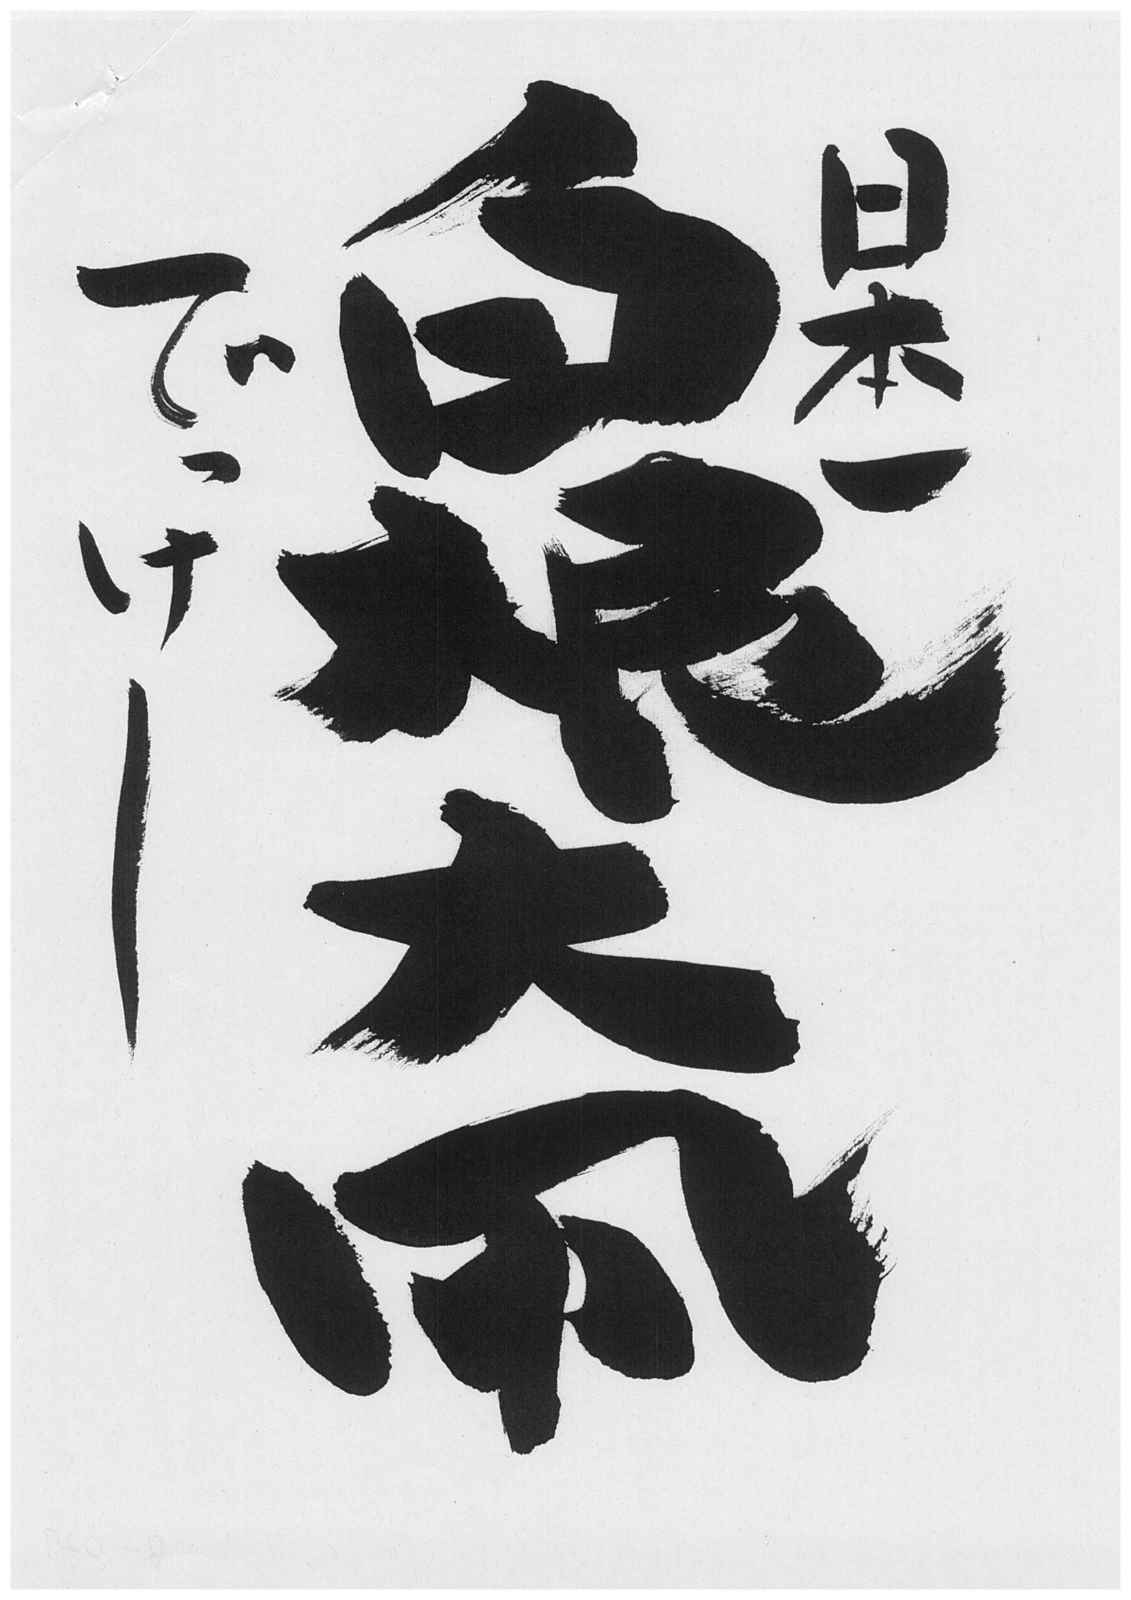 日本一
白根大凧
でっけー